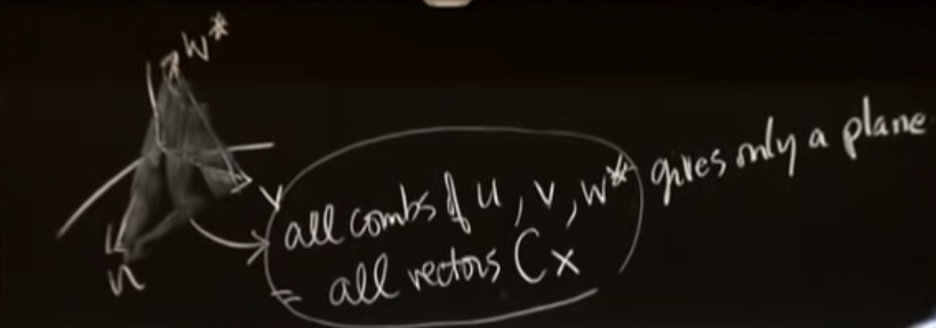 w*
v
u
all combs of u, v, w* gives only a plane
= all vectors Cx